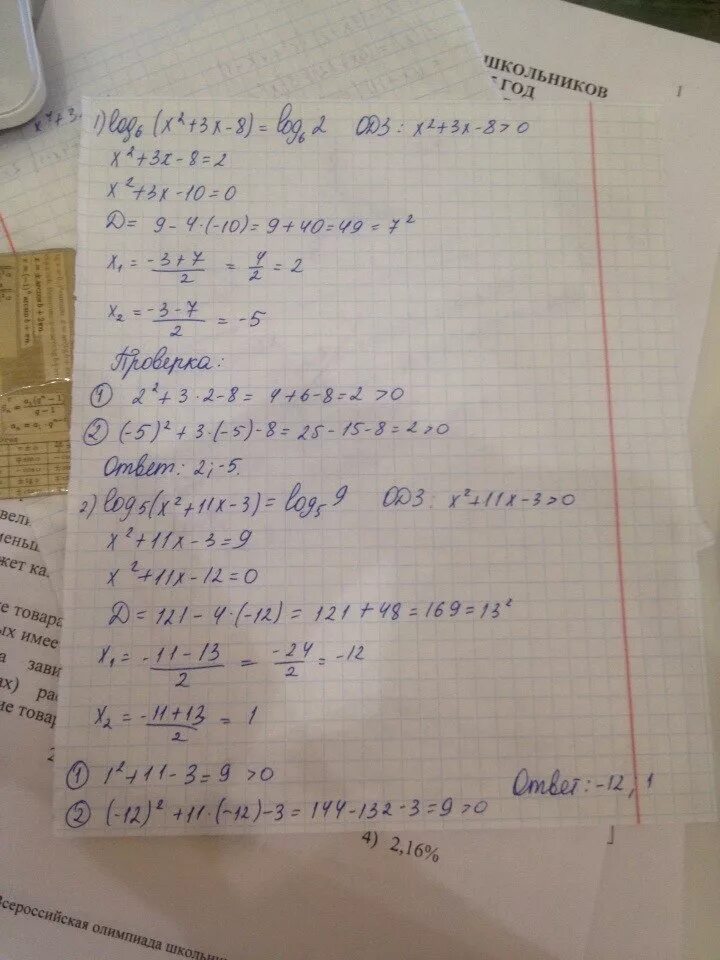 ШКОЛЬНИКОВ
ГОД
1
1) log₆(x²+3x-8) = log₆2 ОДЗ: x²+3x-8>0
x²+3x-8=2
x²+3x-10=0
D= 9-4·(-10)= 9+40=49=7²
x₁ = (-3+7)/2 = 4/2 = 2
x₂ = (-3-7)/2 = -5
Проверка:
① 2²+3·2-8= 4+6-8=2>0
② (-5)²+3·(-5)-8=25-15-8=2>0
Ответ: 2; -5.
2) log₅(x²+11x-3)= log₅9 ОДЗ: x²+11x-3>0
x²+11x-3=9
x²+11x-12=0
D=121-4·(-12)=121+48=169=13²
x₁ = (-11-13)/2 = -24/2 = -12
x₂ = (-11+13)/2 = 1
① 1²+11-3=9>0
Ответ: -12; 1
② (-12)²+11·(-12)-3=144-132-3=9>0
4) 2,16%
е товара
ых имее
а зави
ах) рас
ие товар
Всероссийская олимпиада школьни